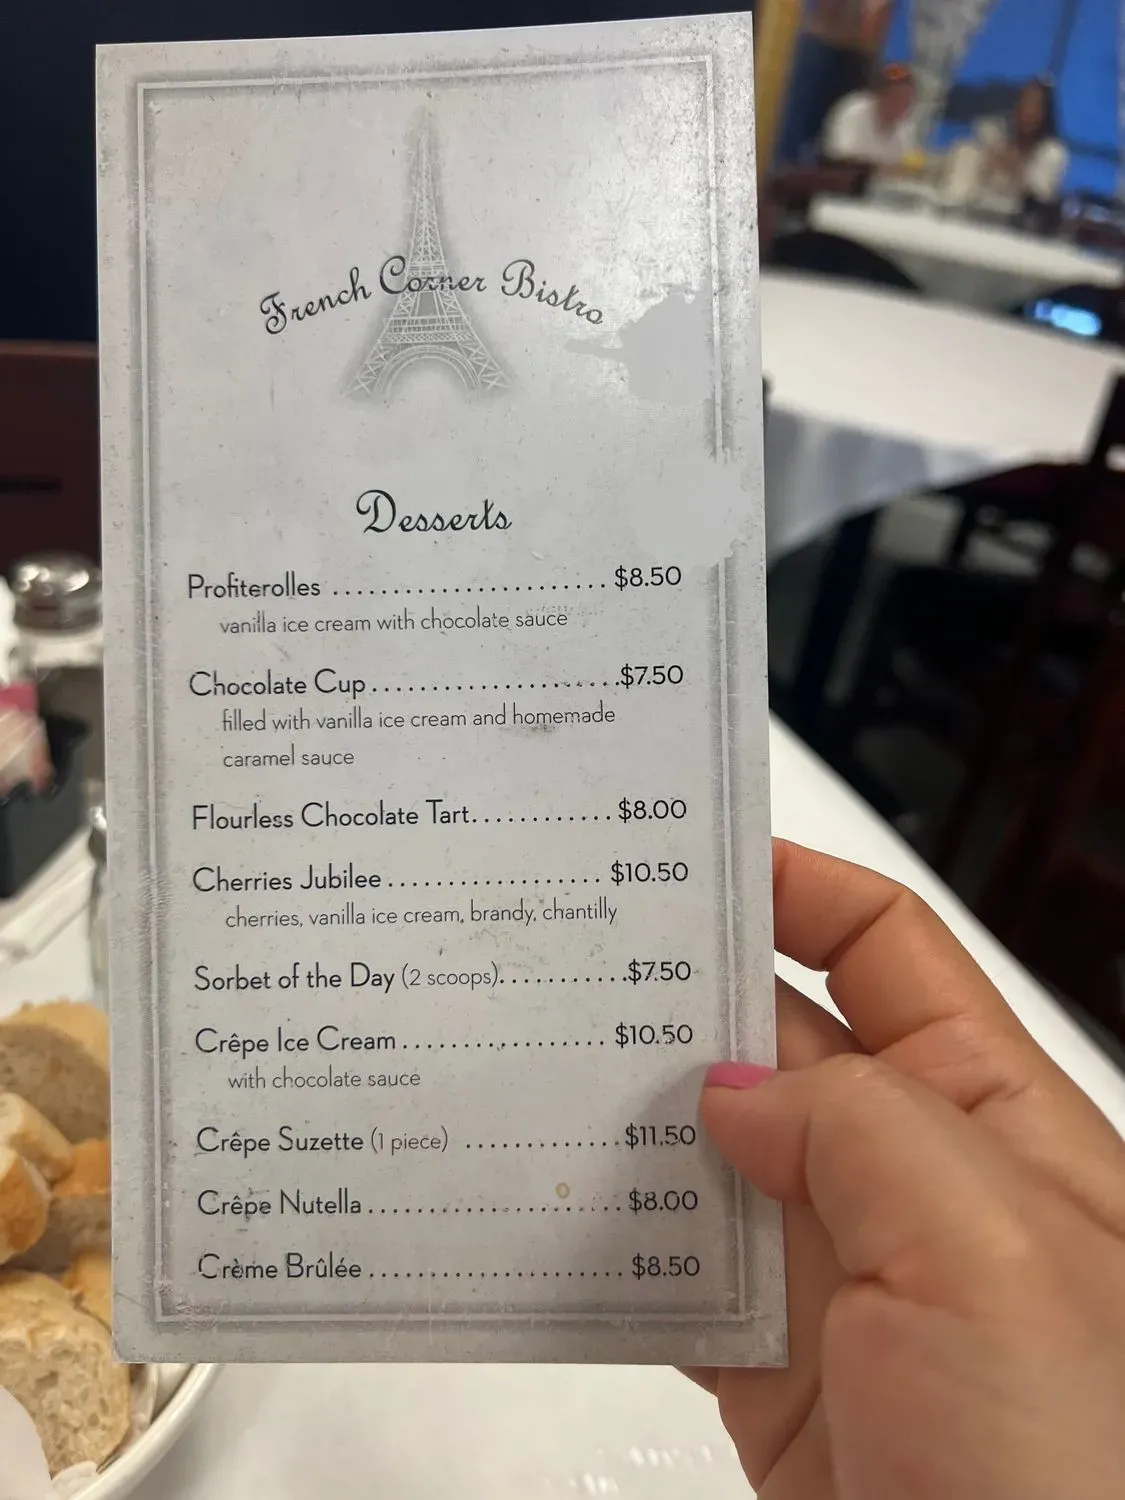 French Corner Bistro
Desserts
Profiterolles ....................... $8.50
vanilla ice cream with chocolate sauce
Chocolate Cup.....................$7.50
filled with vanilla ice cream and homemade
caramel sauce
Flourless Chocolate Tart............ $8.00
Cherries Jubilee .................. $10.50
cherries, vanilla ice cream, brandy, chantilly
Sorbet of the Day (2 scoops)...........$7.50
Crêpe Ice Cream ................. $10.50
with chocolate sauce
Crêpe Suzette (1 piece) .............$11.50
Crêpe Nutella ..................... $8.00
Crème Brûlée ..................... $8.50